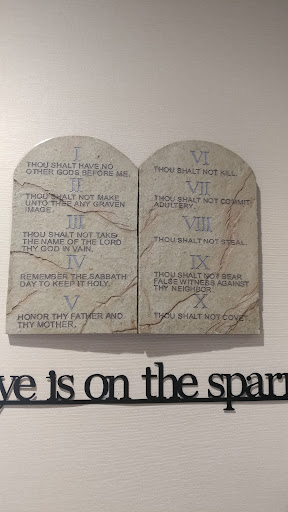 I
THOU SHALT HAVE NO
OTHER GODS BEFORE ME.
II
THOU SHALT NOT MAKE
UNTO THEE ANY GRAVEN
IMAGE.
III
THOU SHALT NOT TAKE
THE NAME OF THE LORD
THY GOD IN VAIN.
IV
REMEMBER THE SABBATH
DAY TO KEEP IT HOLY.
V
HONOR THY FATHER AND
THY MOTHER.
VI
THOU SHALT NOT KILL.
VII
THOU SHALT NOT COMMIT
ADULTERY.
VIII
THOU SHALT NOT STEAL.
IX
THOU SHALT NOT BEAR
FALSE WITNESS AGAINST
THY NEIGHBOR
X
THOU SHALT NOT COVET.
ye is on the sparr